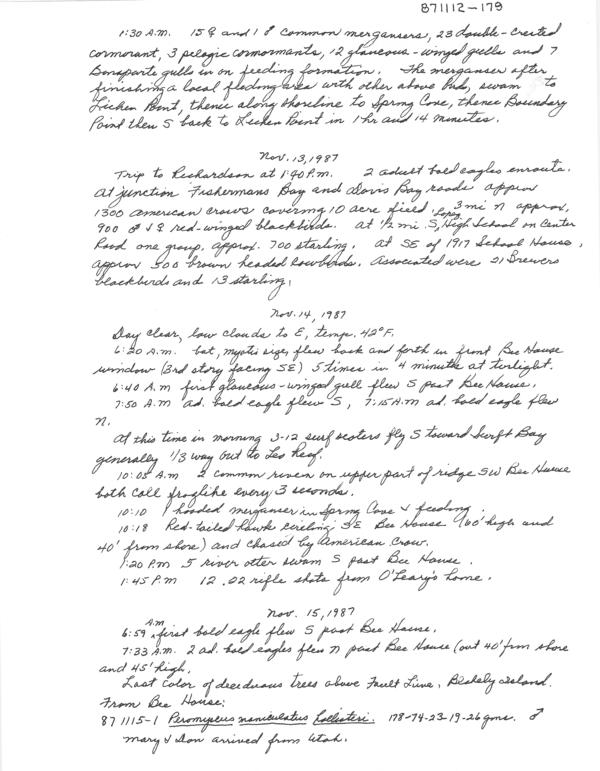 871112-179
1:30 A.M. 15 ♀ and 1 ♂ common mergansers, 23 double-crested
cormorant, 3 pelagic cormorants, 12 glaucous-winged gulls and 7
Bonaparte gulls in on feeding formation. The merganser after
finishing a local feeding area with other above birds, swam to
Lichen Point, thence along shoreline to Spring Cove, thence Boundary
Point then S back to Lichen Point in 1 hr and 14 minutes.
Nov. 13, 1987
Trip to Richardson at 1:40 P.M. 2 adult bald eagles enroute.
At junction Fishermans Bay and Davis Bay roads approx
1300 american crows covering 10 acre field. 3 mi N approx,
900 ♂ & ♀ red-winged blackbirds. At 1/2 mi S, Lopez High School on Center
Road one group, approx. 700 starling. at SE of 1917 School House,
approx 500 brown headed cowbirds. Associated were 21 Brewers
blackbirds and 13 starling.
Nov. 14, 1987
Day clear, low clouds to E, temp. 42°F.
6:20 A.M. bat, myotis size, flew back and forth in front Bee House
window (3rd story facing SE) 5 times in 4 minutes at twilight.
6:40 A.M first glaucous-winged gull flew S past Bee House.
7:50 A.M ad. bald eagle flew S, 7:15 A.M ad. bald eagle flew
N.
At this time in morning 3-12 surf scoters fly S toward Swift Bay
generally 1/3 way out to Leo Reef.
10:05 A.M 2 common raven on upper part of ridge SW Bee House
both call froglike every 3 seconds.
10:10 1 hooded merganser in Spring Cove & feeding.
10:18 Red-tailed hawk circling SE Bee House (60' high and
40' from shore) and chased by American Crow.
1:20 P.M 5 river otter swam S past Bee House.
1:45 P.M 12 .22 rifle shots from O'Leary's home.
Nov. 15, 1987
6:59 A.M. first bald eagle flew S past Bee House.
7:33 A.M. 2 ad. bald eagles flew N past Bee House (out 40' from shore
and 45' high.
Last color of deciduous trees above Fault Line, Blakely Island.
From Bee House:
871115-1 Peromyscus maniculatus hollisteri. 178-74-23-19-26 gms. ♂
Mary & Don arrived from Utah.